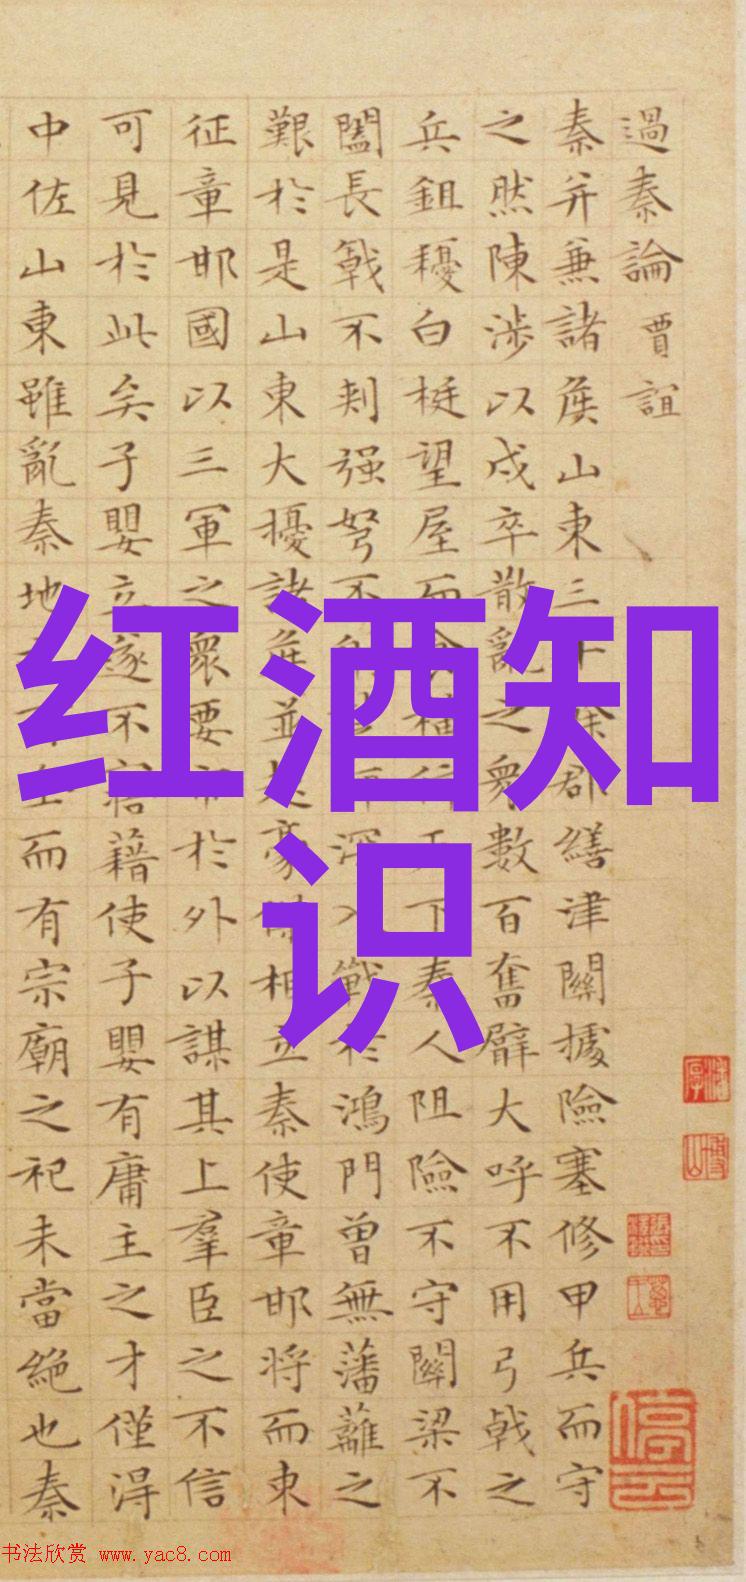 過秦論 賈誼
秦并兼諸侯山東三餘郡繕津關據險塞修甲兵而守
之然陳涉以戍卒散亂之衆數百奮臂大呼不用弓戟之
兵鉏耰白梃望屋而行下秦人阻險不守關梁不
闔長戟不刺强弩不深入戰於鴻門曾無藩籬之
艱於是山東大擾諸侯並起豪相立秦使章邯將而東
征章邯國以三軍之衆要市於外以謀其上羣臣之不信
可見於此矣子嬰立遂不寤藉使子嬰有庸主之才僅得
中佐山東雖亂秦地而有宗廟之祀未當絕也秦
红酒知
识
书法欣赏 www.yac8.com